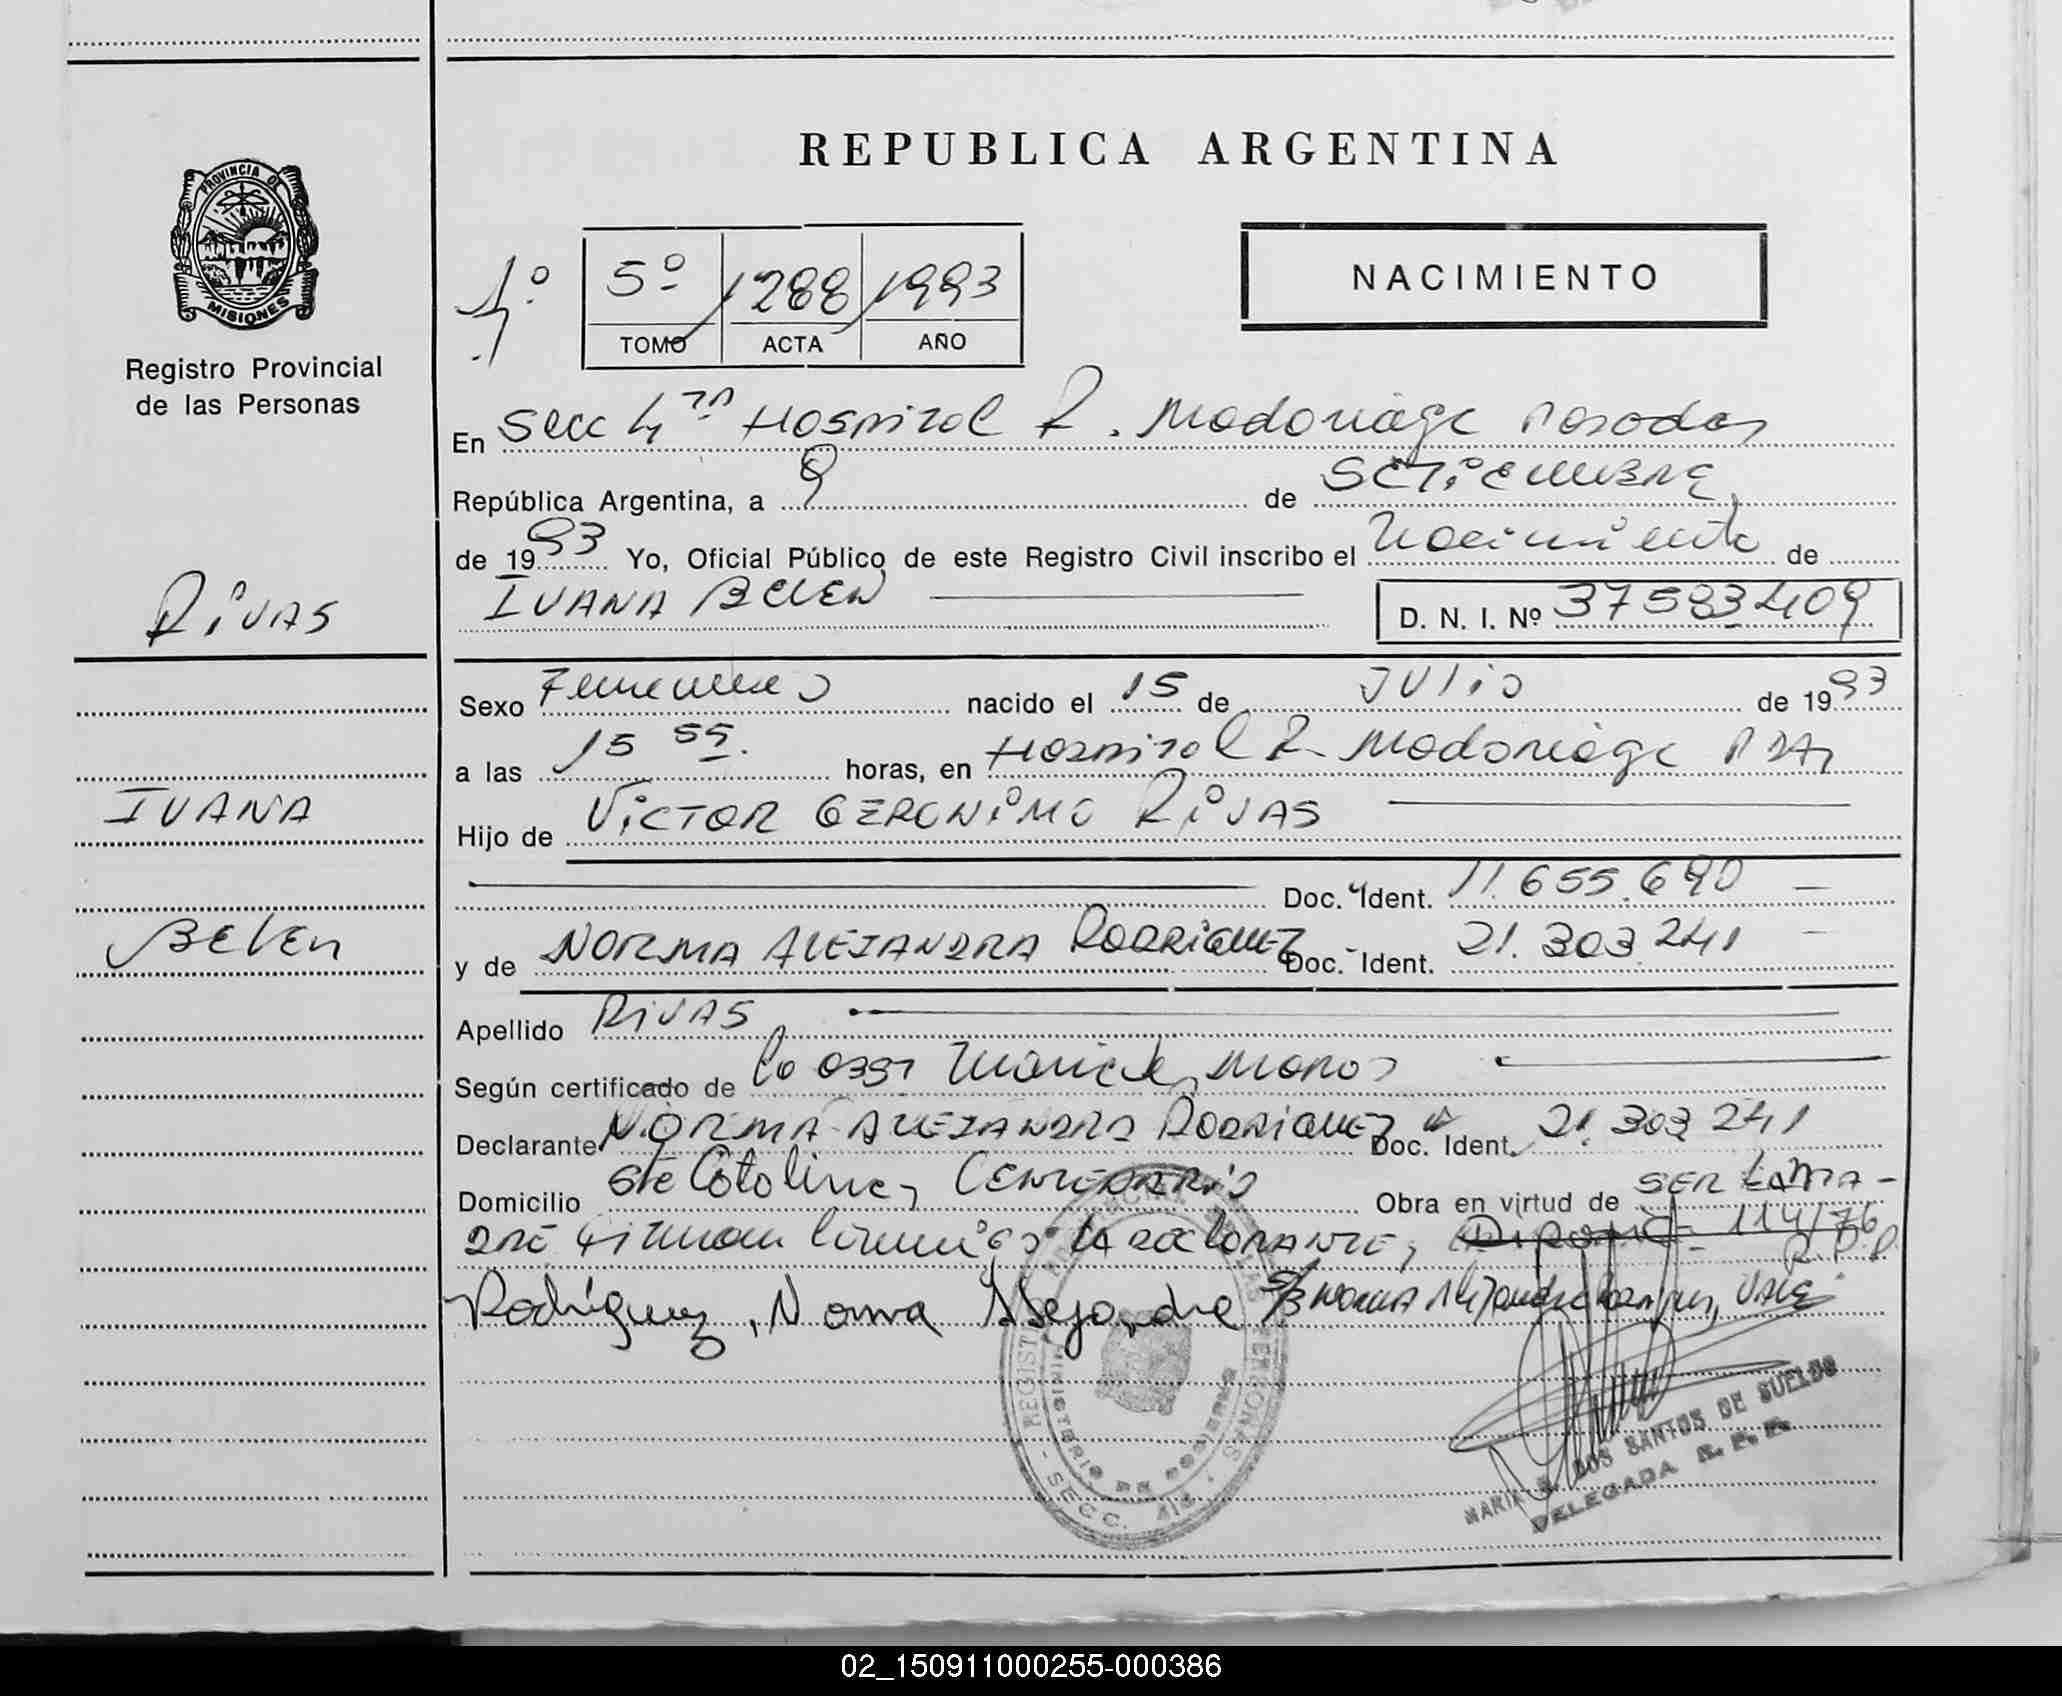 REPUBLICA ARGENTINA
PROVINCIA DE
MISIONES
Registro Provincial
de las Personas
4º 5º 1288 1993
TOMO ACTA AÑO
NACIMIENTO
En Secc 4ta Hospital R. Madariaga Posadas
República Argentina, a 9 de SETIEMBRE
de 1993 Yo, Oficial Público de este Registro Civil inscribo el Nacimiento de
IVANA BELEN D. N. I. Nº 37583409
RIVAS
Sexo Femenino nacido el 15 de JULIO de 1993
a las 15 55. horas, en Hospital R. Madariaga PDAS
IVANA
Hijo de VICTOR GERONIMO RIVAS
Doc. Ident. 11.655.690
BELEN
y de NORMA ALEJANDRA RODRIGUEZ Doc. Ident. 21.303.241
Apellido RIVAS
Según certificado de
Declarante NORMA ALEJANDRA RODRIGUEZ Doc. Ident. 21.303 241
Domicilio Sta Catalina, Obra en virtud de SER LA MA-
DRE Firman conmigo la declarante, 114/76
R.P.P.
Rodríguez, Norma Alejandra S/B NORMA Alejandra Rodriguez, VALE
MARIA DOS SANTOS DE SUELDO
DELEGADA R. P. P.
02_150911000255-000386